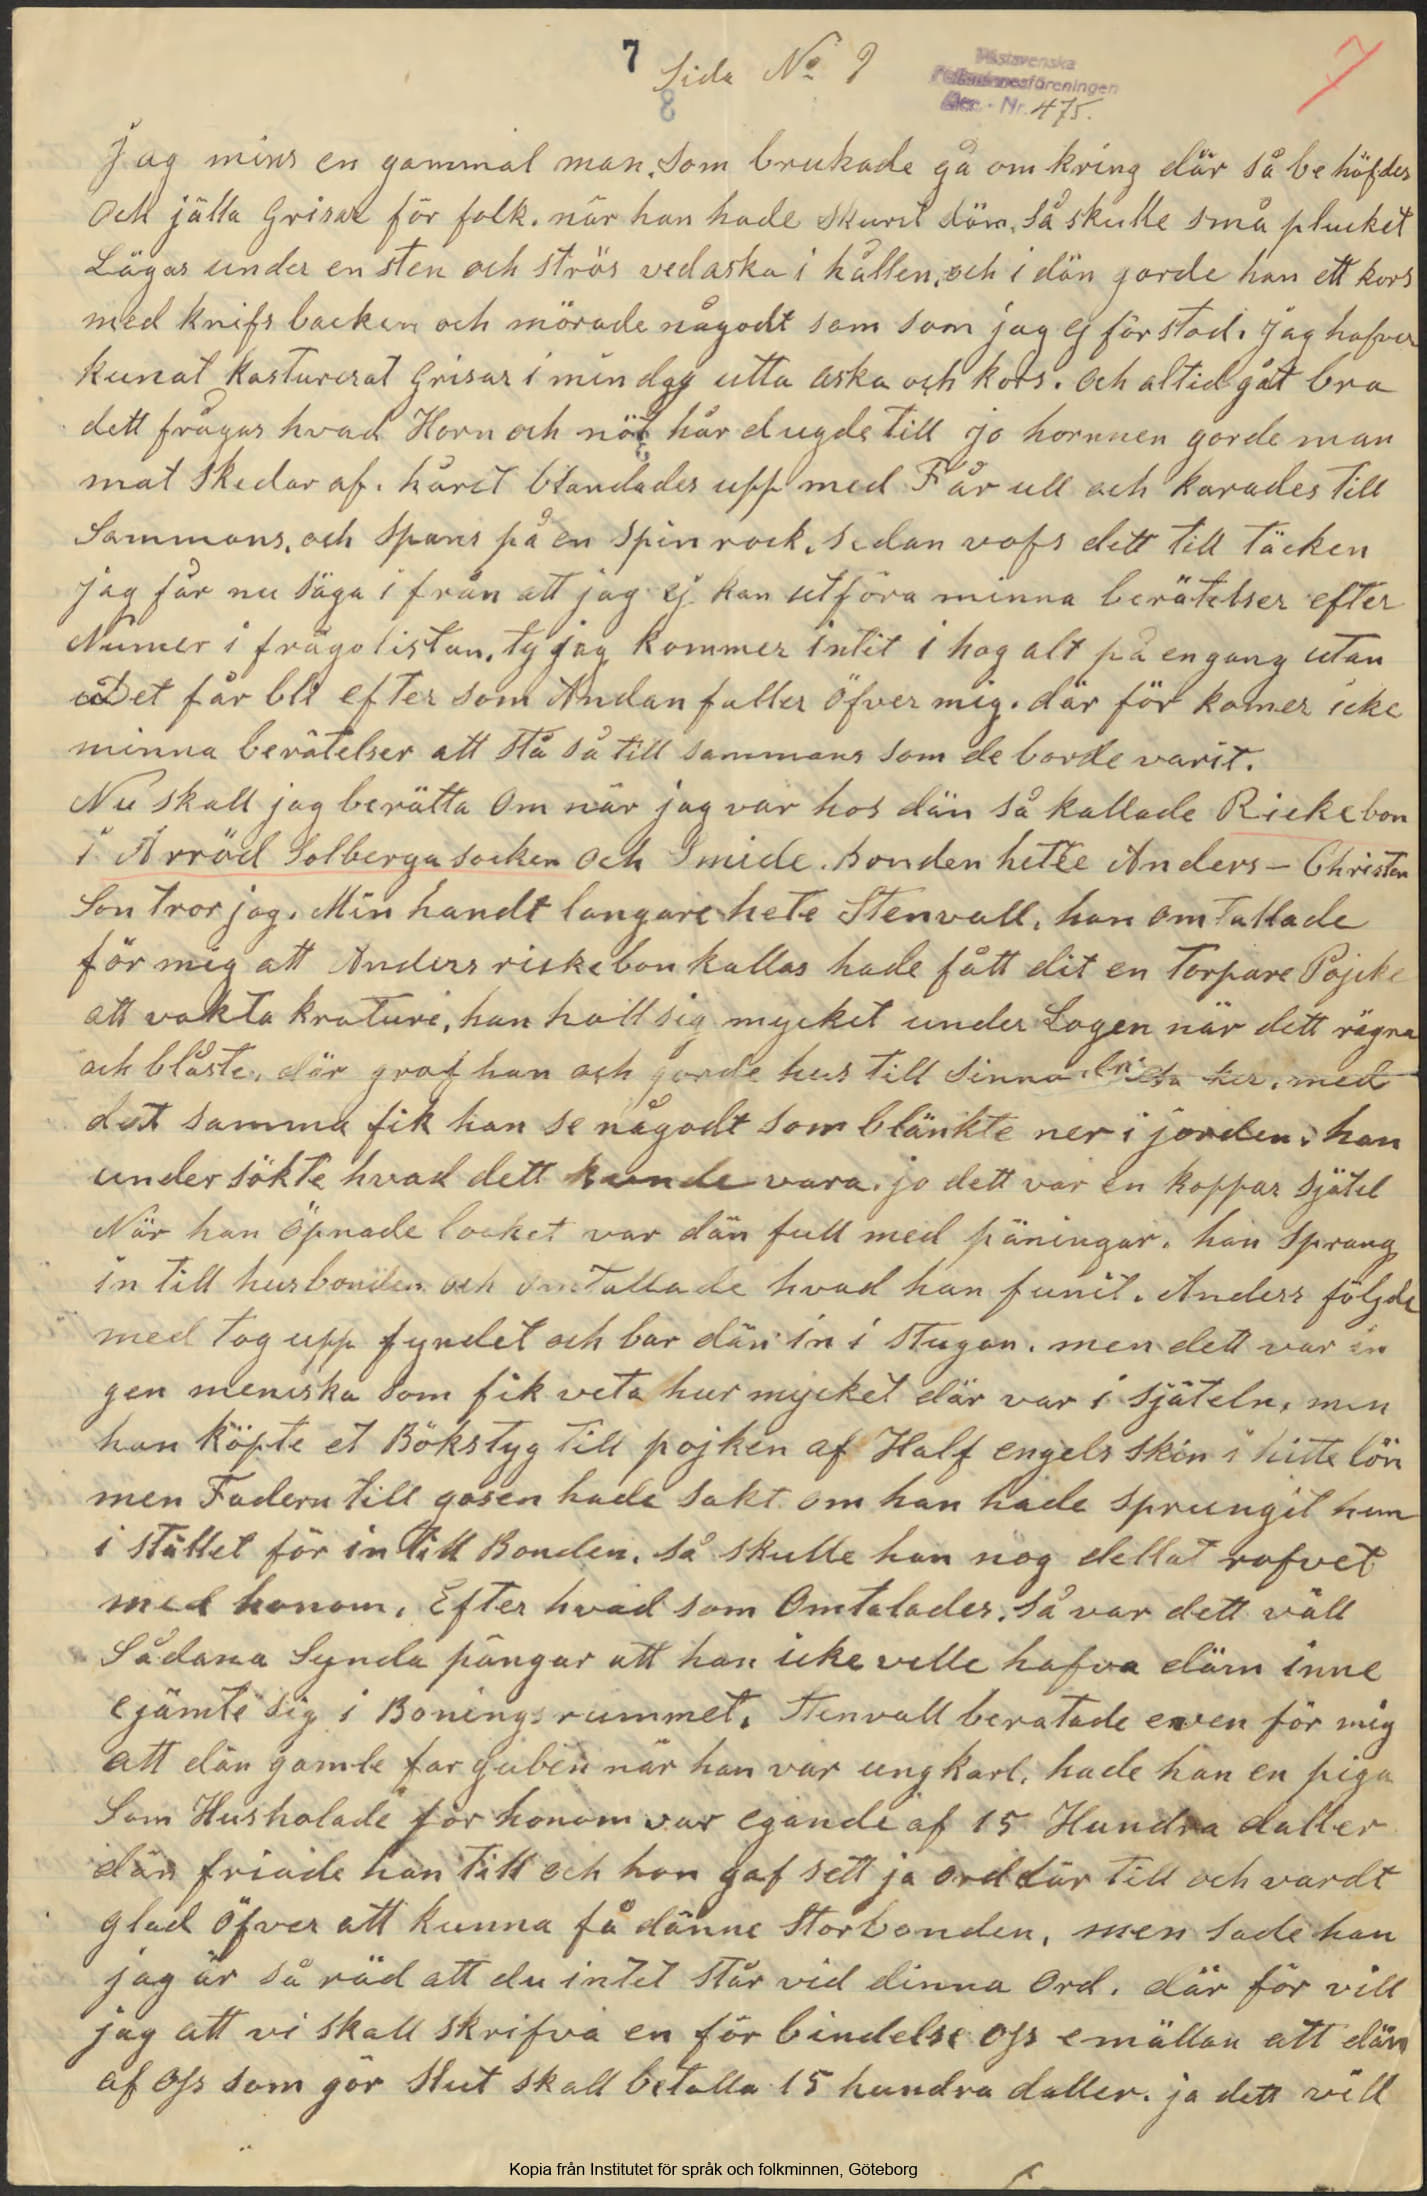 7 Sida No 9
8
Västsvenska
Folkminnesföreningen
Acc. - Nr. 475.
7
Jag mins en gammal man. Som brukade gå om kring där så be höfdes
Och jälla Grisar för folk. när han hade Skurit däm, så skulle små plucket
Lägas under en sten och strös vedaska i hållen, och i dän gorde han ett kors
med knifs backen och mörade någodt som som jag ej för stod. Jag hafver
kunat kasturerat Grisar i min dag utta aska och kors. och altid gåt bra
dett frågas hvad Horn och nöt hår dugde till jo hornnen gorde man
mat Skedar af. håret blandades upp med Får ull och karades till
Sammans, och spans på en spin rock, sedan vofs dett till täcken
jag får nu säga i från att jag ej kan utföra minna berätelser efter
Numer i frågo listan, ty jag kommer intit i hog alt på en gang utan
Det får bli efter som Andan faller öfver mig. där för komer icke
minna berätelser att stå så till sammans som de borde varit.
Nu skall jag berätta Om när jag var hos dän så kallade Rickebon
i Arröd Solberga socken och Smide. Bonden hette Anders – Christen
Son tror jag. Min handt langare hete Stenvall, han omtallade
för mig att Anders rickebon kallas hade fått dit en Torpare Pojcke
att vakta kraturé, han holl sig mycket under Logen när dett rägna
och blåste. där grof han och gorde hus till sinna ker. med
det samma fik han se någodt som blänkte ner i jorden. han
under sökte hvad dett kunde vara. jo dett var en koppar sjätel
När han öpnade locket var dän full med päningar. han sprang
in till husbonden och omtallade hvad han funit. Anders följde
med tog upp fyndet och bar dän in i stugan. men dett var in
gen meniska som fik veta hur mycket där var i sjäteln, men
han köpte et Bökstyg till pojken af Half engels skin i hitte lön
men Fadern till gosen hade sakt om han hade sprungit hem
i stället för in till Bonden. så skulle han nog dellat rofvet
med honom. Efter hvad som Omtalades. så var dett väll
Sådana Synda pängar att han icke ville hafva däm inne
ejämte sig i Bonings rummet. Stenvall beratade even för mig
att dän gamle far guben när han var ung karl. hade han en piga
Som Husholade för honom var egande af 15 Hundra daller
dän friade han till och hon gaf sett ja ord där till och vardt
glad öfver att kunna få dänne Storbonden, men sade han
jag är så räd att du intet står vid dinna Ord. där för vill
jag att vi skall skrifva en för bindelse oss emällan att dän
af oss som gör Slut skall betalla 15 hundra daller. ja dett vill
Kopia från Institutet för språk och folkminnen, Göteborg